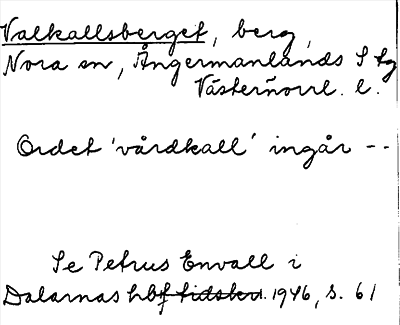 Valkallsberget, berg,
Nora sn, Ångermanlands S tg
Västernorrl. l.
Ordet 'vårdkall' ingår --
Se Petrus Envall i
Dalarnas hbf tidskr. 1946, s. 61